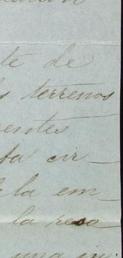 te de
s terrenos
entes
ta cir-
de la em-
la reso
una in-